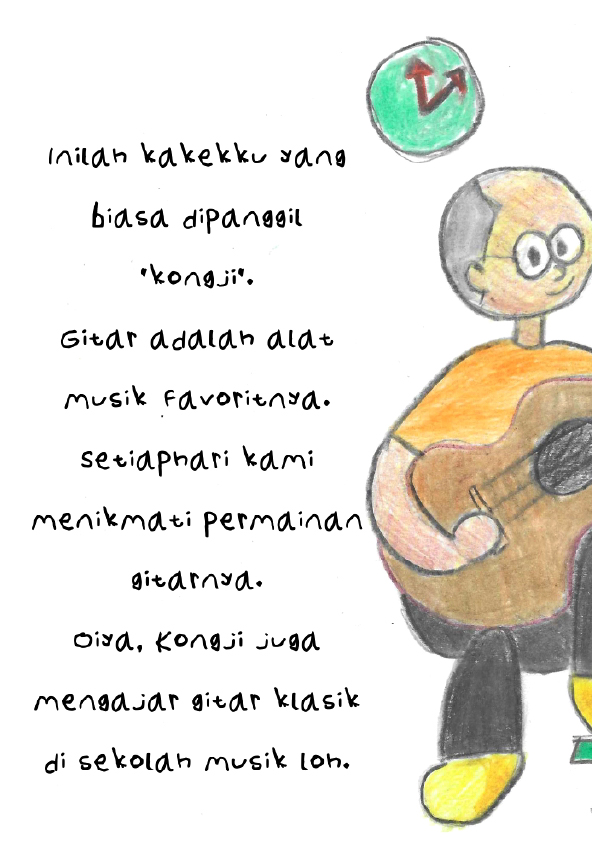 Inilah kakekku yang
biasa dipanggil
"kongji".
Gitar adalah alat
musik favoritnya.
setiaphari kami
menikmati permainan
gitarnya.
Oiya, Kongji juga
mengajar gitar klasik
di sekolah musik loh.